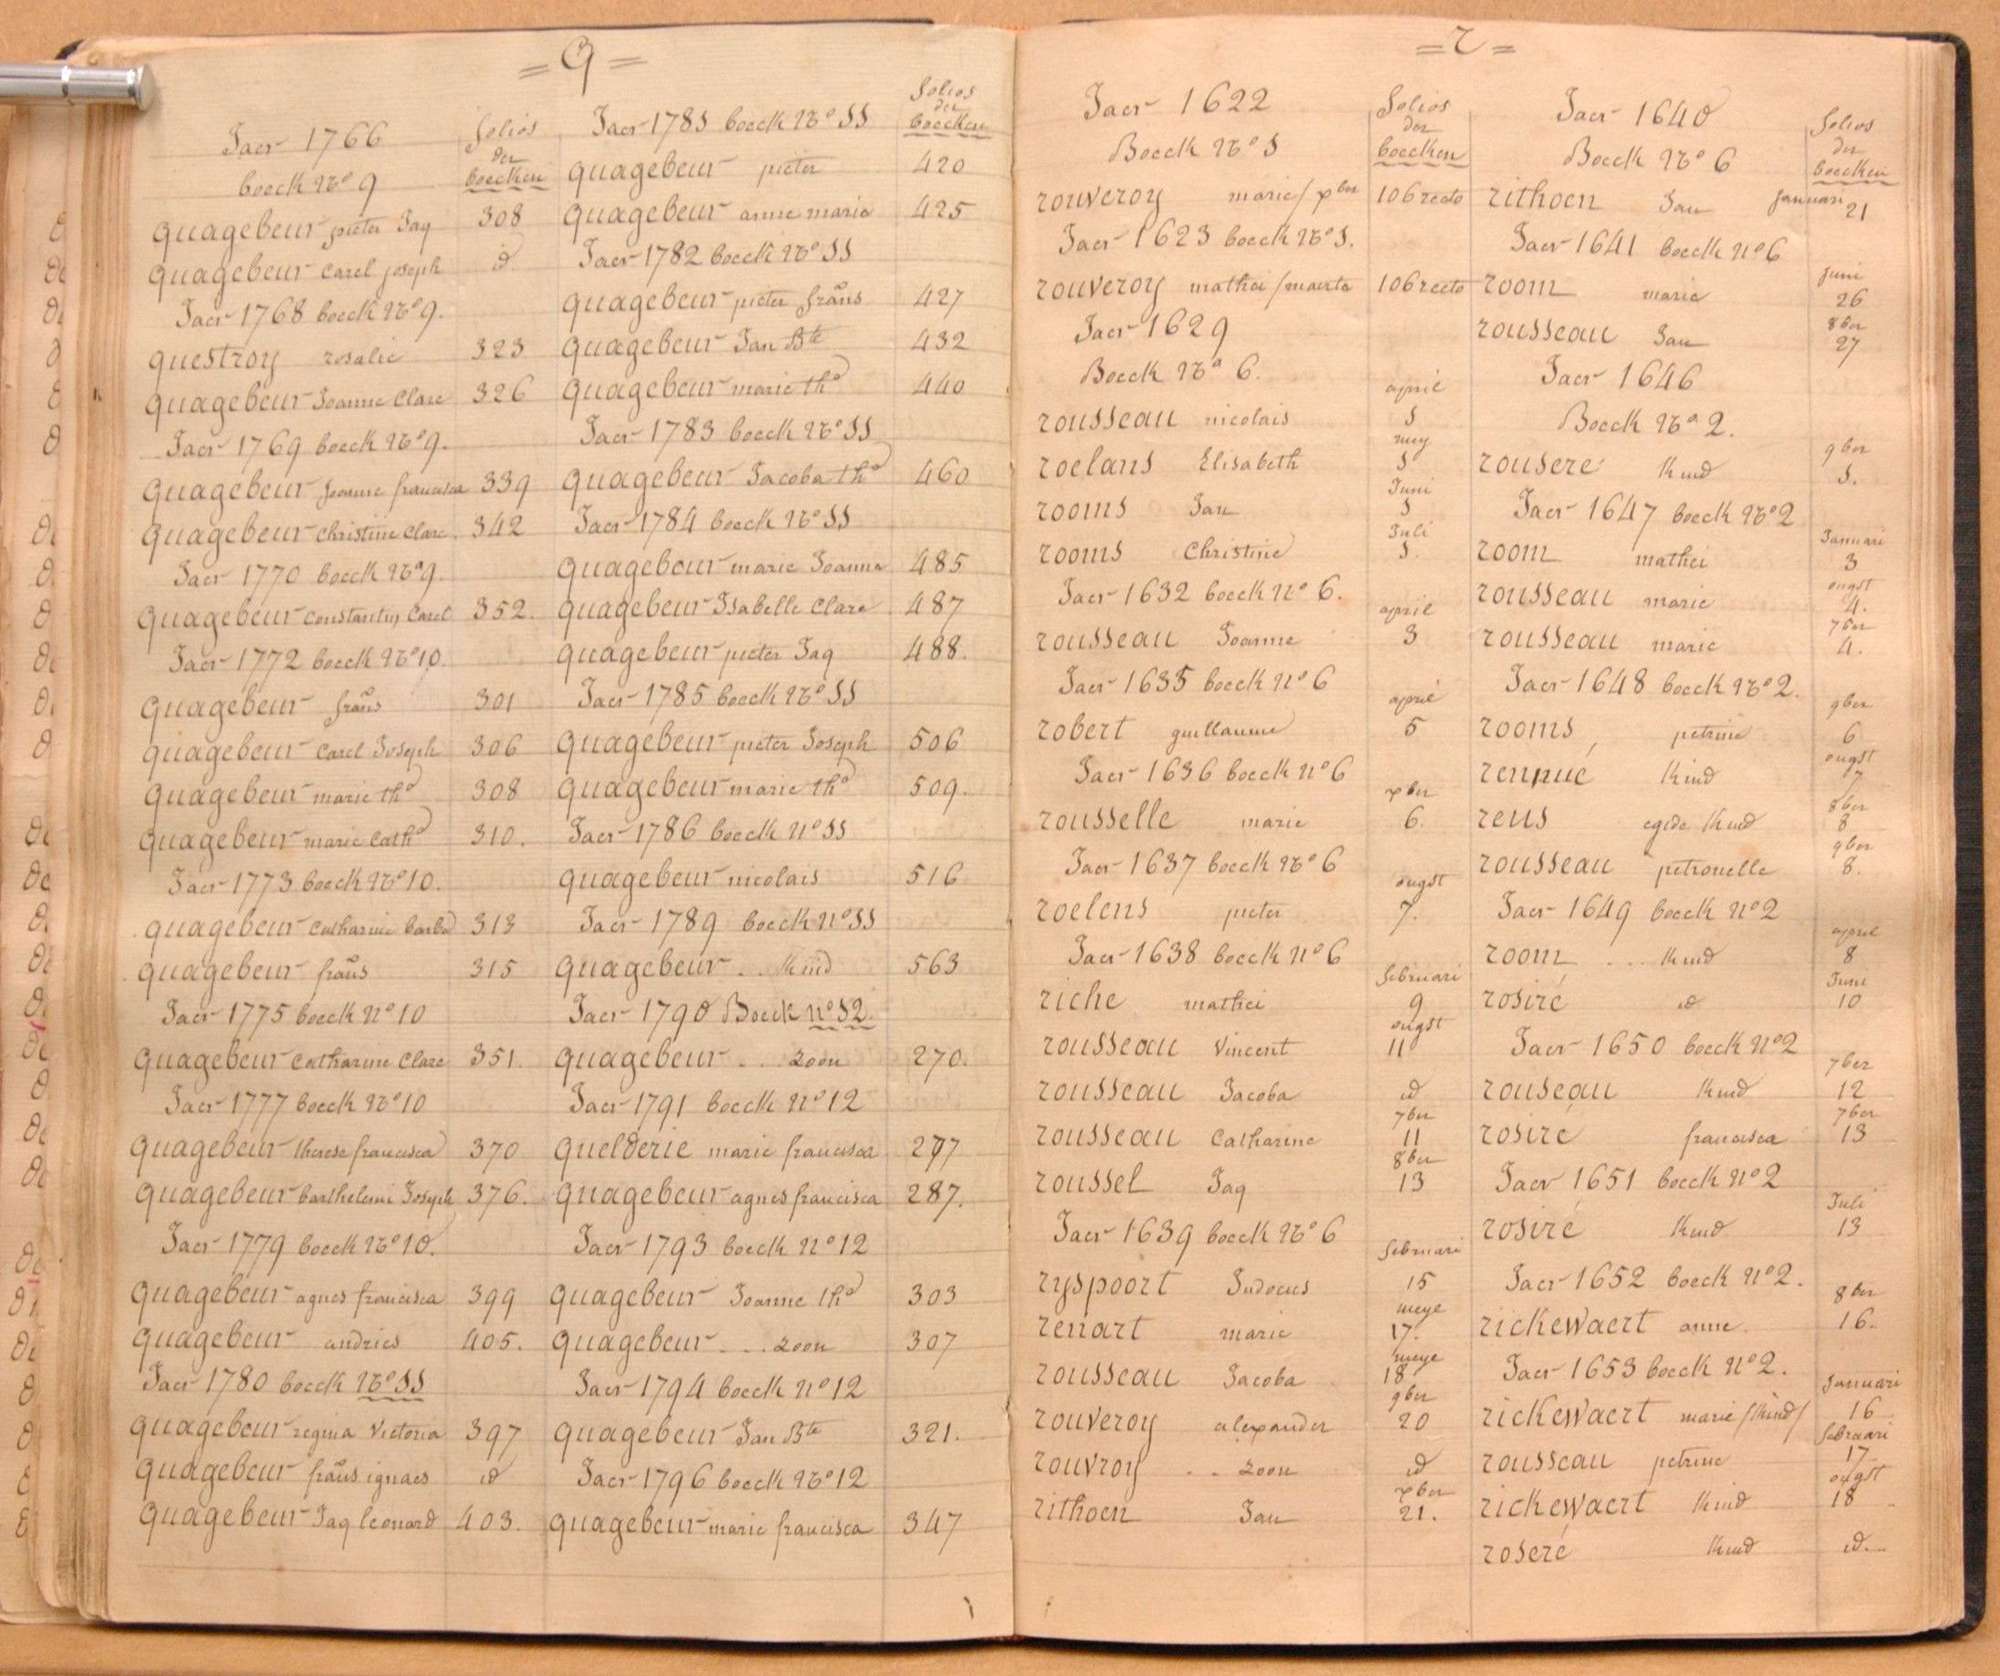 = Q =
Jaer 1766
boeck No 9
folios
der
boecken
quagebeur pieter Jaq 308
quagebeur carel joseph id
Jaer 1768 boeck No 9.
questroy rosalie 323
quagebeur Joanne Clare 326
Jaer 1769 boeck No 9.
quagebeur Joanne francisca 339
quagebeur christine Clare 342
Jaer 1770 boeck No 9.
quagebeur constantin Carel 352.
Jaer 1772 boeck No 10.
quagebeur frans 301
quagebeur Carel Joseph 306
quagebeur marie tha 308
quagebeur marie Catha 310.
Jaer 1773 boeck No 10.
quagebeur Catharine barba 313
quagebeur frans 315
Jaer 1775 boeck No 10
quagebeur Catharine Clare 351.
Jaer 1777 boeck No 10
quagebeur therese francisca 370
quagebeur barthelemi Joseph 376.
Jaer 1779 boeck No 10.
quagebeur agnes francisca 399
quagebeur andries 405.
Jaer 1780 boeck No 11
quagebeur regina Victoria 397
quagebeur frans ignaes id
quagebeur Jaq leonard 403.
Jaer 1781 boeck No 11
folios
der
boecken
quagebeur pieter 420
quagebeur anne marie 425
Jaer 1782 boeck No 11
quagebeur pieter frans 427
quagebeur Jan Bte 432
quagebeur marie tha 440
Jaer 1783 boeck No 11
quagebeur Jacoba tha 460
Jaer 1784 boeck No 11
quagebeur marie Joanna 485
quagebeur Isabelle Clare 487
quagebeur pieter Jaq 488.
Jaer 1785 boeck No 11
quagebeur pieter Joseph 506
quagebeur marie tha 509.
Jaer 1786 boeck No 11
quagebeur nicolais 516
Jaer 1789 boeck No 11
quagebeur .. Kind 563
Jaer 1790 Boeck No 12.
quagebeur ... zoon 270.
Jaer 1791 boeck No 12
quelderie marie francisca 277
quagebeur agnes francisca 287.
Jaer 1793 boeck No 12
quagebeur Joanne tha 303
quagebeur ... zoon 307
Jaer 1794 boeck No 12
quagebeur Jan Bte 321.
Jaer 1796 boeck No 12
quagebeur marie francisca 347
= r =
Jaer 1622
Boeck No 1
folios
der
boecken
rouveroy marie / xber 106 recto
Jaer 1623 boeck No 1.
rouveroy mathei / maerte 106 recto
Jaer 1629
Boeck No 6.
rousseau nicolais april 1
roelans Elisabeth mey 1
rooms Jan Juni 1
rooms Christine Juli 1.
Jaer 1632 boeck No 6.
rousseau Joanne april 3
Jaer 1635 boeck No 6
robert guillaume april 5
Jaer 1636 boeck No 6
rousselle marie xber 6.
Jaer 1637 boeck No 6
roelens pieter ougst 7.
Jaer 1638 boeck No 6
riche mathei februari 9
rousseau Vincent ougst 11
rousseau Jacoba id
rousseau Catharine 7ber 11
roussel Jaq 8ber 13
Jaer 1639 boeck No 6
ryspoort Judocus februari 15
renart marie meye 17.
rousseau Jacoba meye 18
rouveroy alexander 9ber 20
rouvroy .. zoon id
rithoen Jan xber 21.
Jaer 1640
Boeck No 6
folios
der
boecken
rithoen Jan Januari 21
Jaer 1641 boeck No 6
room marie Juni 26
rousseau Jan 8ber 27
Jaer 1646
Boeck No 2.
rouseré Kind 9ber 1.
Jaer 1647 boeck No 2
room mathei Januari 3
rousseau marie ougst 4.
rousseau marie 7ber 4.
Jaer 1648 boeck No 2.
rooms petrine 9ber 6
rennué Kind ougst 7
rens egide Kind 8ber 8
rousseau petronelle 9ber 8.
Jaer 1649 boeck No 2
room ... Kind april 8
rosiré id Juni 10
Jaer 1650 boeck No 2
rouseau Kind 7ber 12
rosiré francisca 7ber 13
Jaer 1651 boeck No 2
rosiré Kind Juli 13
Jaer 1652 boeck No 2.
rickewaert anne 8ber 16.
Jaer 1653 boeck No 2.
rickewaert marie /Kind/ Januari 16
rousseau petrine februari 17
rickewaert Kind ougst 18
roseré Kind id.